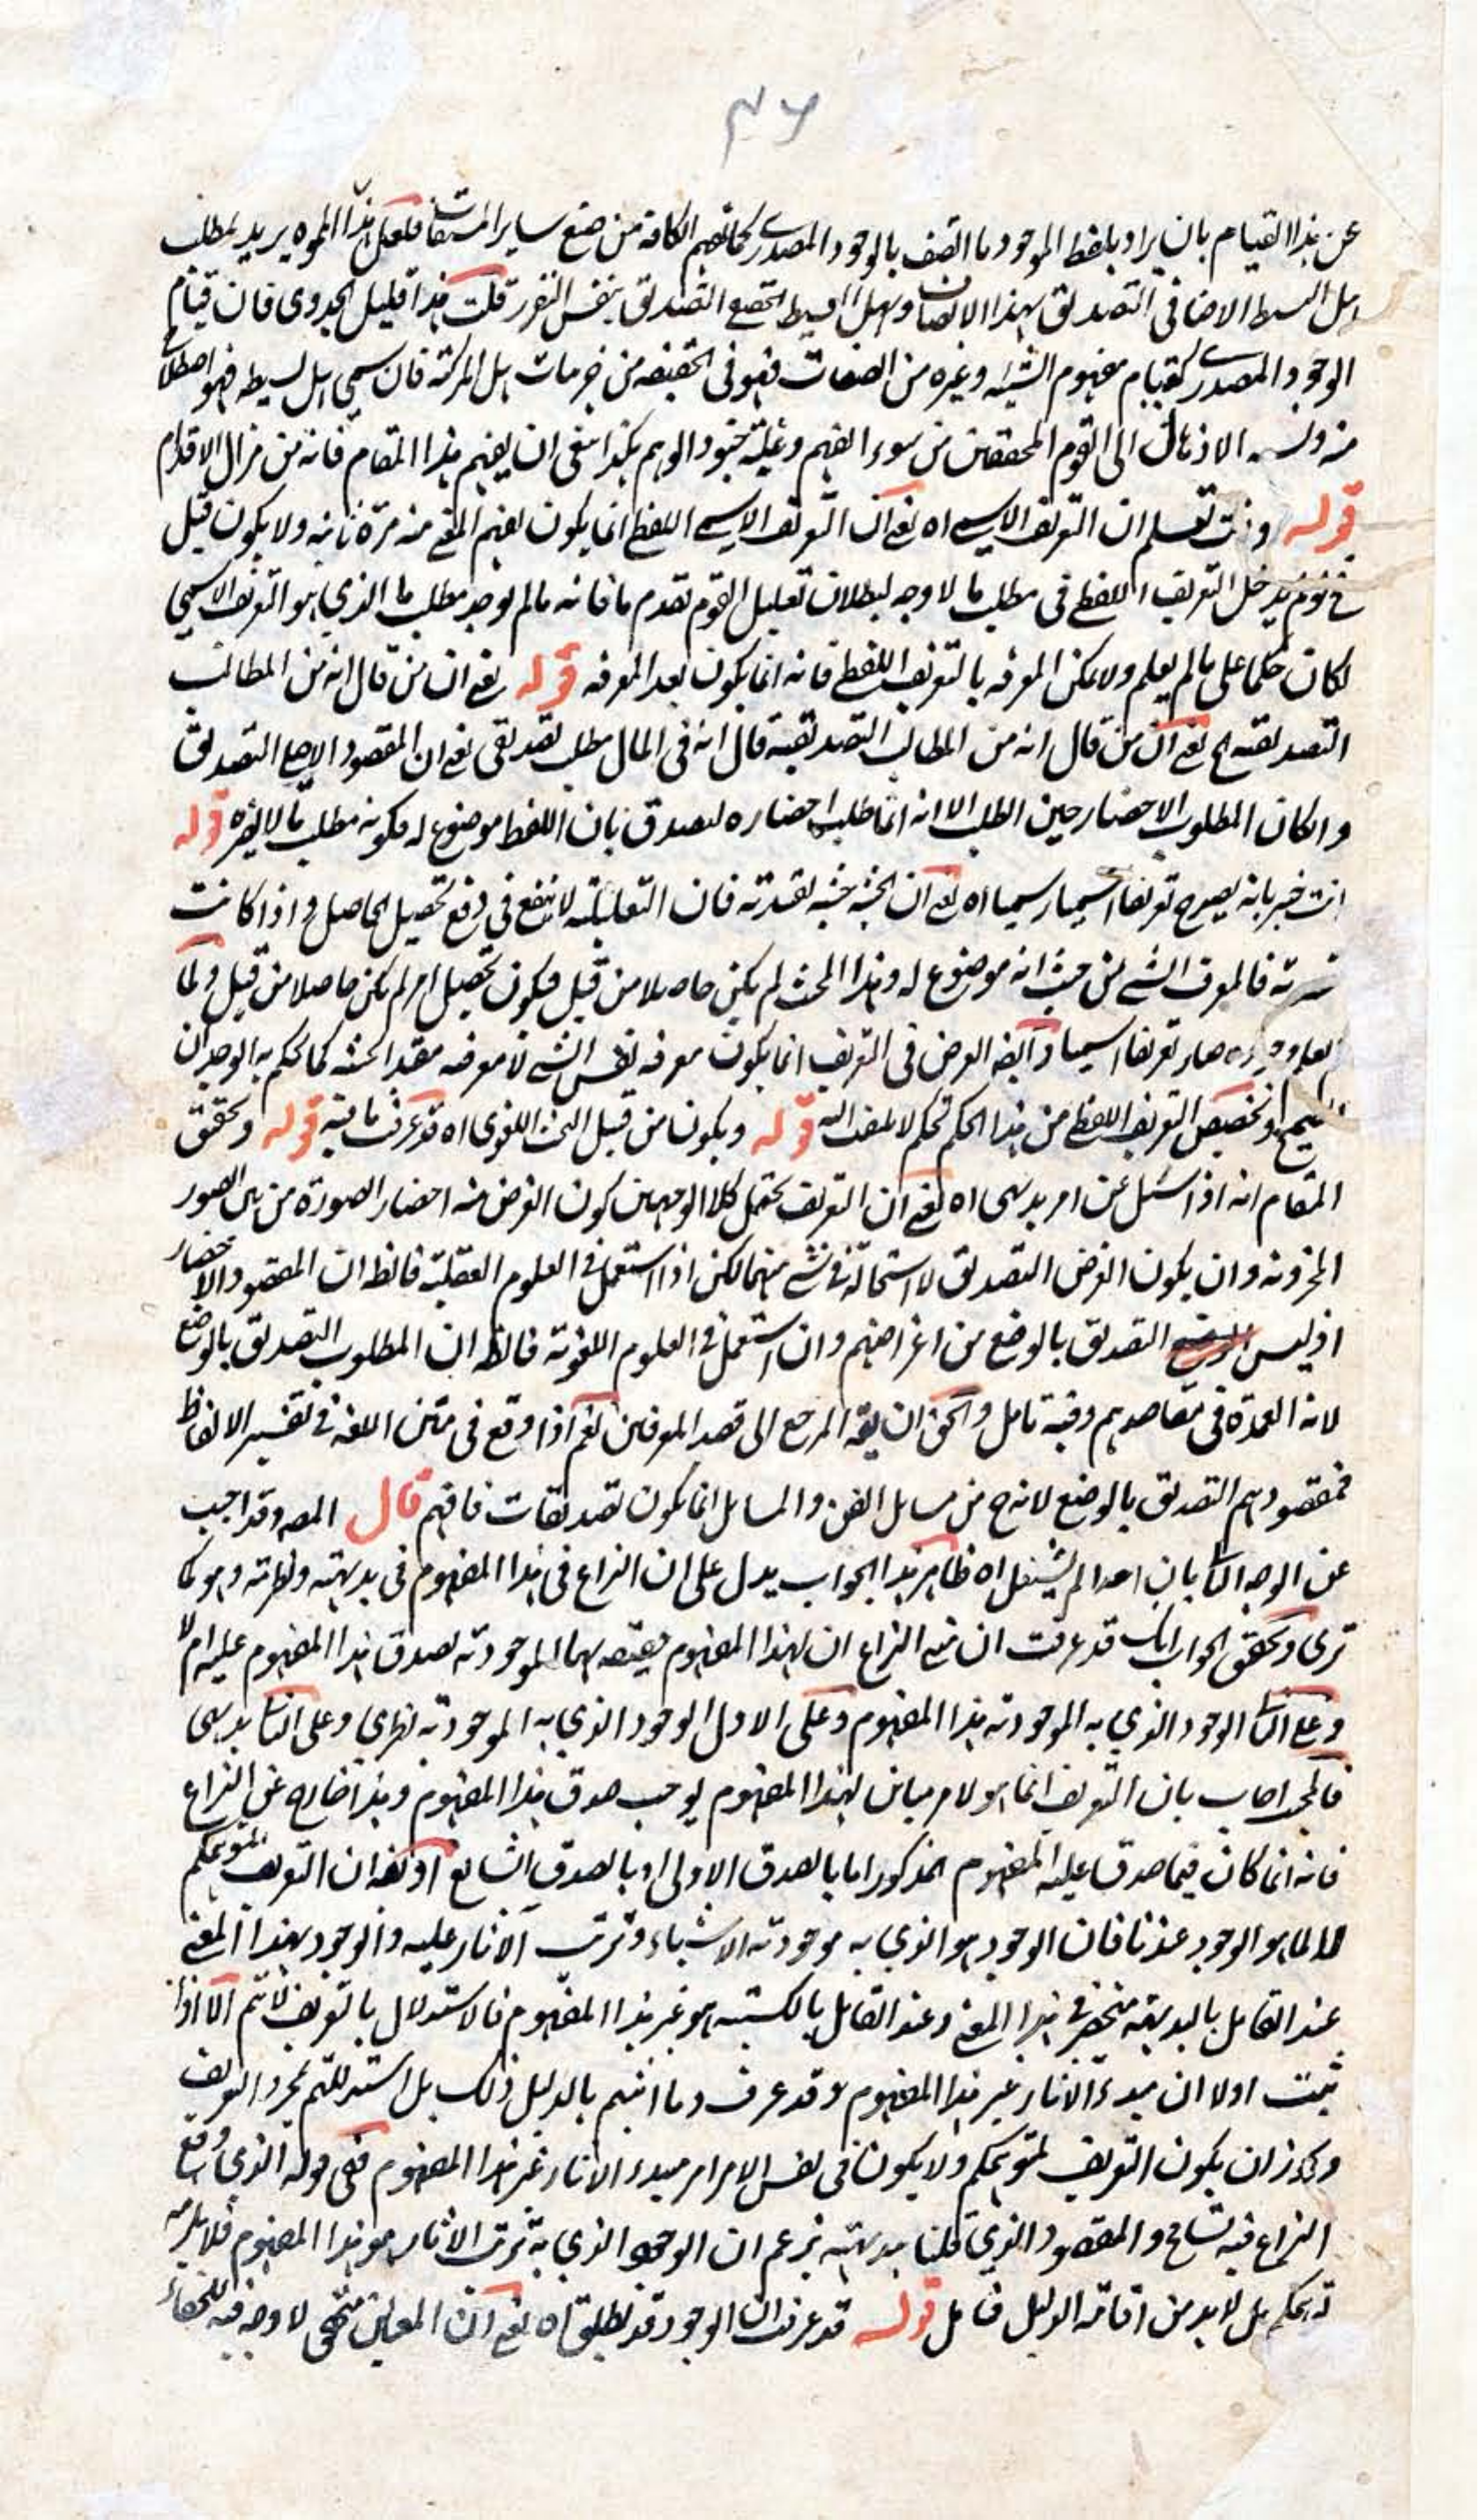 ٣٦
عن هذا القيام بان يراد بلفظ الموجود ما اتصف بالوجود المصدري كما تفهم الكافة من صنع ساير المشتقات فلعل هذا المموه يريد بمطلب
هل البسيط الاضافي التصديق بهذا الاتصاف وبهل البسيط الحقيقي التصديق بنفس التقرر قلت هذا قليل الجدوى فان قيام
الوجود المصدري كقيام مفهوم الشيئية وغيره من الصفات فهو في الحقيقة من جزئيات هل المركبة فان سمي هل بسيطة فهو اصطلاح
منه الى القوم المحققين من سوء الفهم وغلبة جنود الوهم هكذا ينبغي ان يفهم هذا المقام فانه من مزال الاقدام
قوله وانت تعلم ان التعريف الاسمي اه يعني ان التعريف الاسمي اللفظي انما يكون لفهم المعنى منه مرة ثانية ولا يكون قبل
التعريف اللفظي في مطلب ما لا وجه لبطلان تعليل القوم تقدم ما فانه مالم يوجد مطلب ما الذي هو التعريف الاسمي
لكان حكما على مالم يعلم ولا يمكن المعرفة بالتعريف اللفظي فانه انما يكون بعد المعرفة قوله يعني ان من قال انه من المطالب
التصديقية الخ يعني ان من قال انه من المطالب التصديقية قال انه في المال مطلب تصديقي يعني ان المقصود الاصلي التصديق
وان كان المطلوب الاحضار حين الطلب الا انه انما طلب احضاره ليصدق بان اللفظ موضوع له فكونه مطلب ما لا يضره قوله
انت خبير بانه يصير ح تعريفا اسميا رسميا اه يعني ان الحيثية حيثية تقييدية فان التعليلية لا تنفع في دفع تحصيل الحاصل واذا كانت
فالمعرف الشيء من حيث انه موضوع له وهذا البحث لم يكن حاصلا من قبل فيكون تحصيل امر لم يكن حاصلا من قبل ولما
صار تعريفا اسميا وايضا الغرض في التعريف انما يكون معرفة نفس الشيء لا معرفة مقيد الحيثية كما يحكم به الوجدان
وتخصيص التعريف اللفظي من هذا الحكم تحكم لا يلتفت اليه قوله ويكون من قبيل البحث اللغوي اه قد عرفت ما فيه قوله وتحقيق
المقام انه اذا سئل عن امر بديهي اه يعني ان التعريف يحتمل كلا الوجهين كون الغرض منه احضار الصورة من بين الصور
المخزونة وان يكون الغرض التصديق لا استحالة في شيء منهما لكن اذا استعمل في العلوم العقلية فالظ ان المقصود الاحضار
اذ ليس التصديق بالوضع من اغراضهم وان استعمل في العلوم اللغوية فالظ ان المطلوب التصديق بالوضع
لانه العمدة في مقاصدهم وفيه تامل والحق ان يقه المرجع الى قصد المعرفين نعم اذا وقع في متن اللغة في تفسير الالفاظ
فمقصودهم التصديق بالوضع لانه ح من مسايل الفن والمسايل انما يكون تصديقات فافهم قال المصه وقد اجيب
عن الوجه الثا بان احدا لم يشتغل اه ظاهر هذا الجواب يدل على ان النزاع في هذا المفهوم في بديهته ونظريته وهو كما
ترى وتحقيق الجواب انك قد عرفت ان مبنى النزاع ان لهذا المفهوم حقيقة بها الموجودية يصدق هذا المفهوم عليه ام لا
وعلى الثا الوجود الذي به الموجودية هذا المفهوم وعلى الاول الوجود الذي به الموجودية نظري وعلى الثا بديهي
فالمجيب اجاب بان التعريف انما هو لامر مباين لهذا المفهوم يوجب صدق هذا المفهوم وهذا خارج عن النزاع
فانه انما كان فيما صدق عليه المفهوم المذكور اما بالصدق الاولي او بالصدق الشايع اذ يقه ان التعريف لمتوهمكم
لا لما هو الوجود عندنا فان الوجود هو الذي به موجودية الاشياء وترتب الاثار عليه والوجود بهذا المعنى
عند القايل بالبديهية منحصر في هذا المعنى وعند القايل بالكسبية هو غير هذا المفهوم فالاستدلال بالتعريف لا يتم الا اذا
ثبت اولا ان مبدء الاثار غير هذا المفهوم وقد عرف وما اثبتم بالدليل ذلك بل استدللتم بمجرد التعريف
ويجوز ان يكون التعريف لمتوهمكم ولا يكون في نفس الامر امر مبدء الاثار غير هذا المفهوم ففي قوله الذي وقع
النزاع فيه تسامح والمقصود الذي قلنا ببديهته بزعم ان الوجود الذي به ترتب الاثار هو هذا المفهوم فلا يلزمه
بل لا بد من اقامة الدليل فتامل قوله قد عرفت ان الوجود قد يطلق اه يعني ان المعاني لا وجه فيه للخفاء